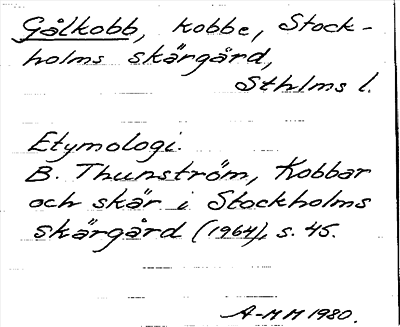 Gålkobb, kobbe, Stock-
holms skärgård,
Sthlms l.
Etymologi.
B. Thunström, Kobbar
och skär i Stockholms
skärgård (1964), s. 45.
A-MM 1980.